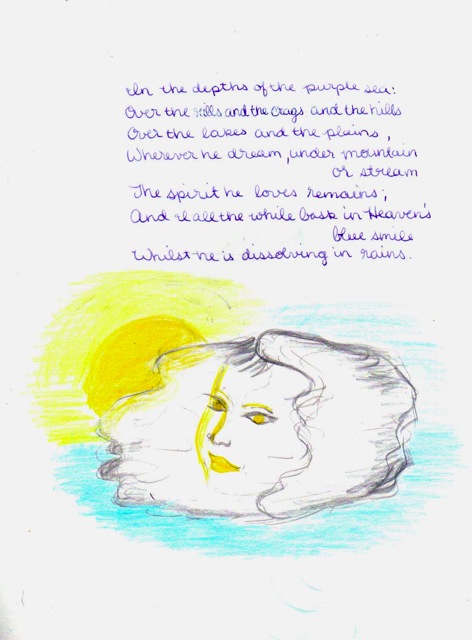 In the depths of the purple sea:
Over the rills and the crags and the hills
Over the lakes and the plains,
Wherever he dream, under mountain
or stream
The spirit he loves remains;
And I all the while bask in Heaven's
blue smile
Whilst he is dissolving in rains.